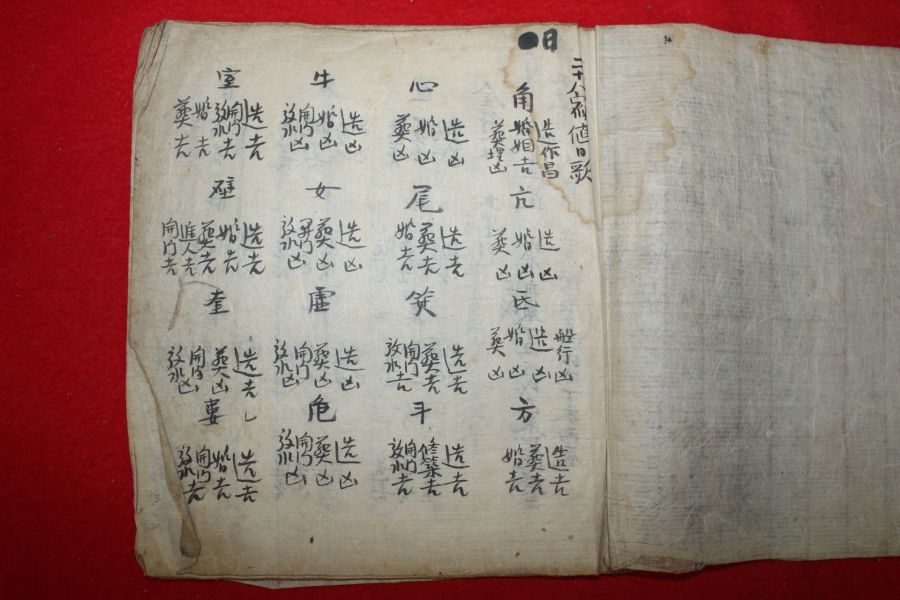 ●日
二十八宿值日歌
角
造作昌
婚姻吉
葬埋凶
亢
造凶
婚凶
葬凶
氐
船行凶
造凶
婚凶
葬凶
方
造吉
葬吉
婚吉
心
造凶
婚凶
葬凶
尾
造吉
葬吉
婚吉
箕
造吉
葬吉
開門
放水吉
斗
造吉
修築吉
開門
放水吉
牛
造凶
婚凶
開門
放水凶
女
造凶
葬凶
開門
放水凶
虛
造凶
葬凶
開門
放水凶
危
造凶
葬凶
開門
放水凶
室
造吉
開門
放水吉
婚吉
葬吉
壁
造吉
婚吉
葬吉
進人吉
開門吉
奎
造吉
葬凶
開門凶
放水
婁
造吉
婚吉
開門吉
放水